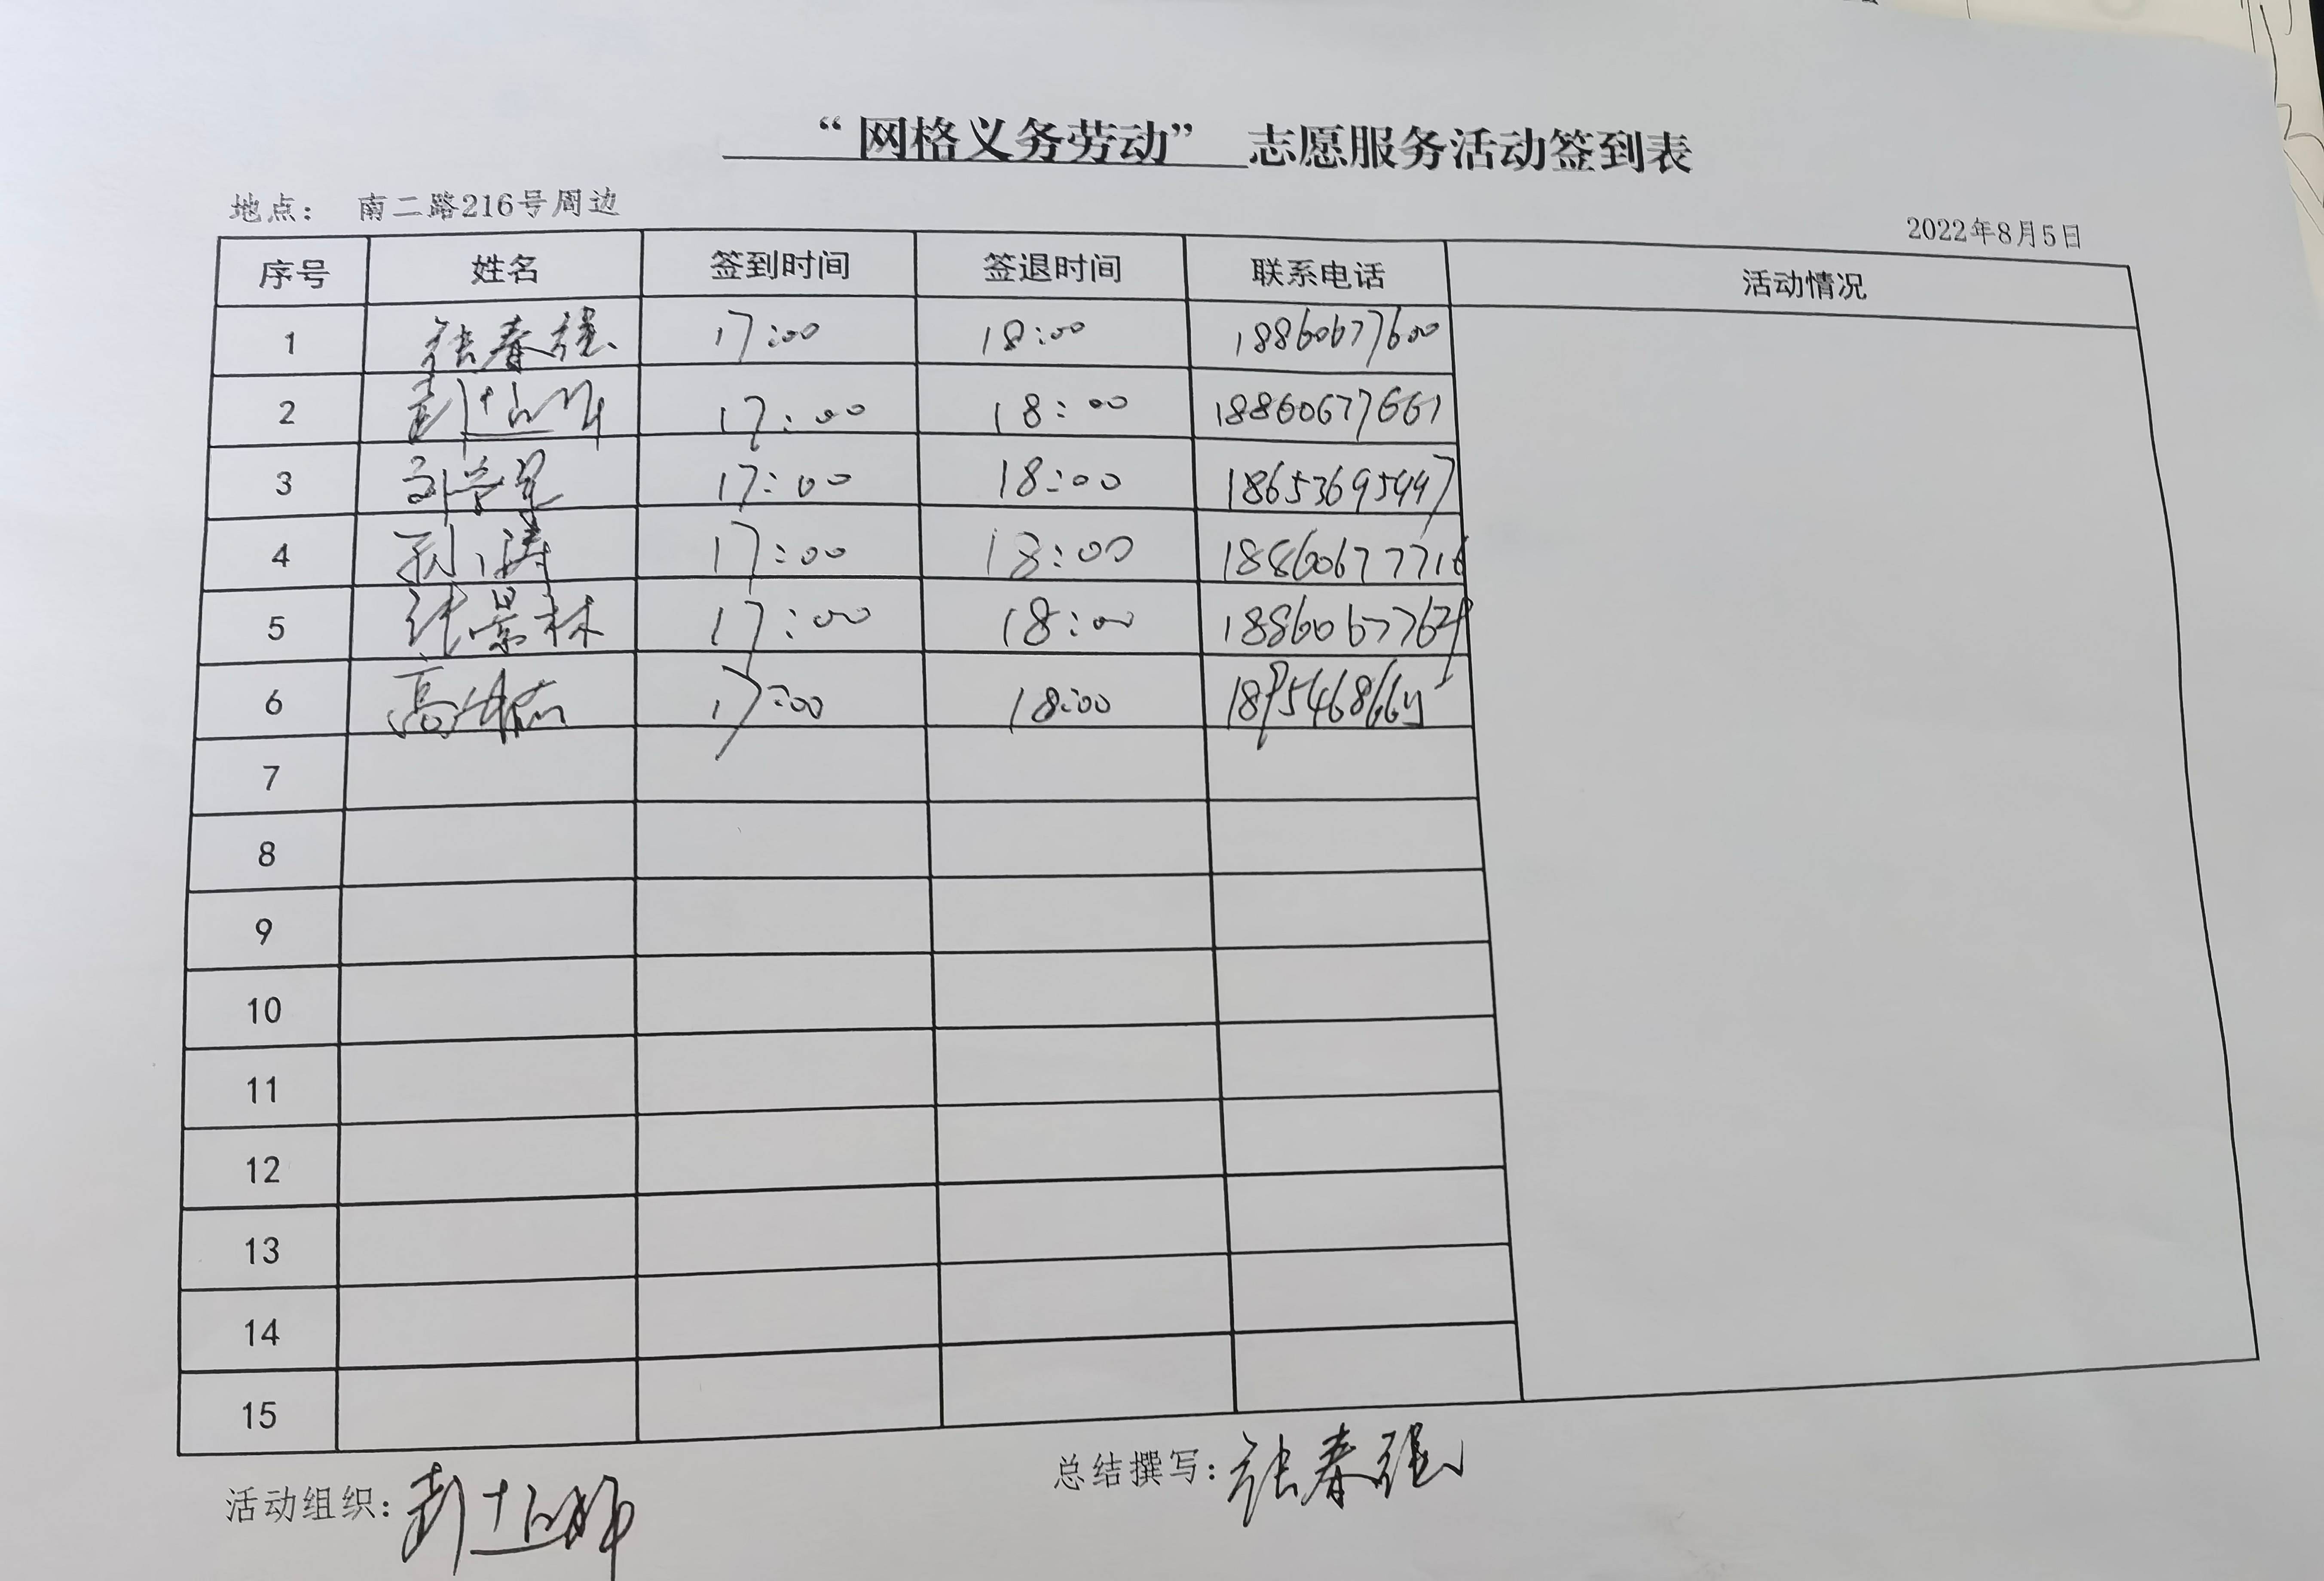 “网格义务劳动” 志愿服务活动签到表
地点： 南二路216号周边
2022年8月5日
序号 姓名 签到时间 签退时间 联系电话 活动情况
1 张春强 17:00 18:00 18860677600
2 17:00 18:00 18860677661
3 17:00 18:00 18653695447
4 孙涛 17:00 18:00 18860677716
5 张景林 17:00 18:00
6 17:00 18:00
7
8
9
10
11
12
13
14
15
活动组织：
总结撰写：张春强